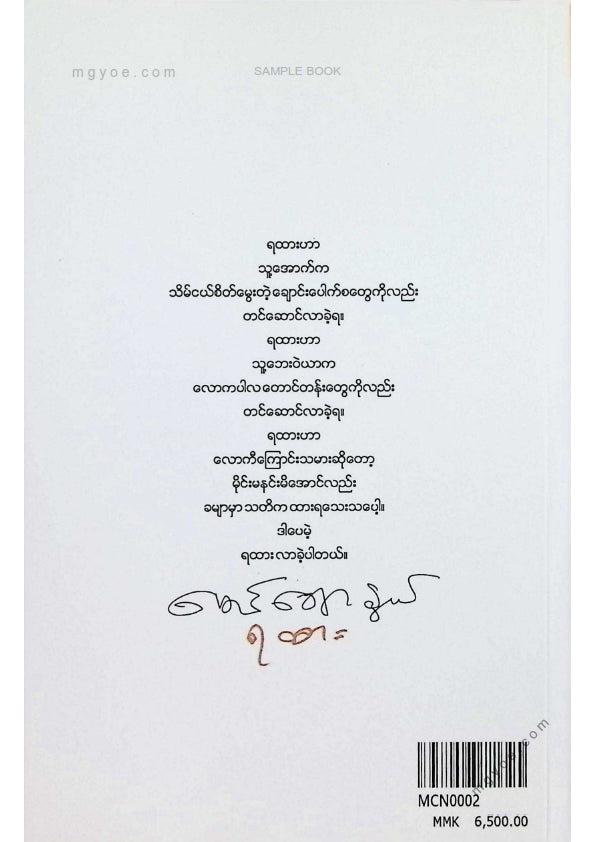 mgyoe.com
SAMPLE BOOK
ရထားဟာ
သူ့အောက်က
သိမ်ငယ်စိတ်မွေးတဲ့ ချောင်းပေါက်စတွေကိုလည်း
တင်ဆောင်လာခဲ့ရ။
ရထားဟာ
သူ့ဘေးဝဲယာက
လောကပါလ တောင်တန်းတွေကိုလည်း
တင်ဆောင်လာခဲ့ရ။
ရထားဟာ
လောကီကြောင်းသမားဆိုတော့
မိုင်းမနင်းမိအောင်လည်း
ခမျာမှာ သတိက ထားရသေးသပေါ့။
ဒါပေမဲ့
ရထား လာခဲ့ပါတယ်။
ရထား
mgyoe.com
MCN0002
MMK 6,500.00